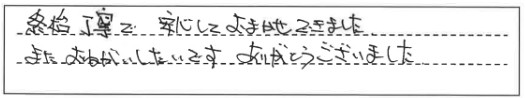 終始丁寧で 安心しておまかせできました
またおねがいしたいです ありがとうございました